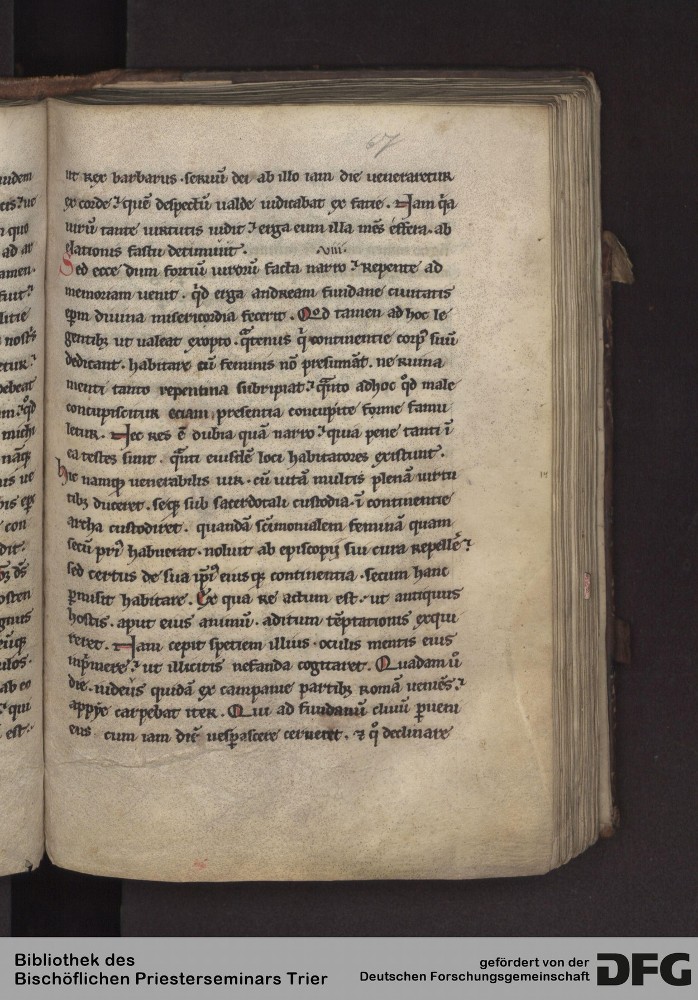 67
ut rex barbarus · seruū dei ab illo iam die ueneraretur
ex corde ⁊ quē despectū ualde iudicabat ex facie . Nam q̄a
uirū tante uirtutis uidit ⁊ erga eum illa mēs effera · ab
elationis fastu detumuit . ·VIII·
Sed ecce dum fortiū uirorū facta narro ⁊ repente ad
memoriam uenit · qd erga andream fundane ciuitatis
epm diuina misericordia fecerit . Qod tamen ad hoc le
gentibꝫ ut ualeat exopto · qtenus q̄ continentie corpꝰ suū
dedicant · habitare cū feminis nō presumāt · ne ruina
menti tanto repentina subripiat ⁊ qnto adhoc qd male
concupiscitur eciam presentia concupite forme famu
letur . Nec res ē dubia quā narro ⁊ quia pene tanti ī
ea testes sunt . qnti eiusdē loci habitatores existunt .
hic namque uenerabilis uir · cū uitā multis plenā uirtu
tibꝫ duceret · seqꝫ sub sacerdotali custodia · ī continentie
archa custodiret . quandā scīmonialem feminā quam
secū priꝰ habuerat · noluit ab episcopij sui cura repellē ⁊
sed certus de sua ipiꝰ eiusqꝫ continentia · secum hanc
pmisit habitare . Ex qua re actum est · ut antiquus
hostis · aput eius animū · aditum tēptationis exqui
reret . Nam cepit speciem illius · oculis mentis eius
inpmere ⁊ ut illicitis nefanda cogitaret . Quadam ū
die · iudeus quidā ex campanie partibꝫ romā ueniēs ⁊
appye carpebat iter . Qui ad fundanū cliuū pueni
ens cum iam diē uespascere cerneret . ⁊ qͦ declinare
Bibliothek des
Bischöflichen Priesterseminars Trier
gefördert von der
Deutschen Forschungsgemeinschaft
DFG